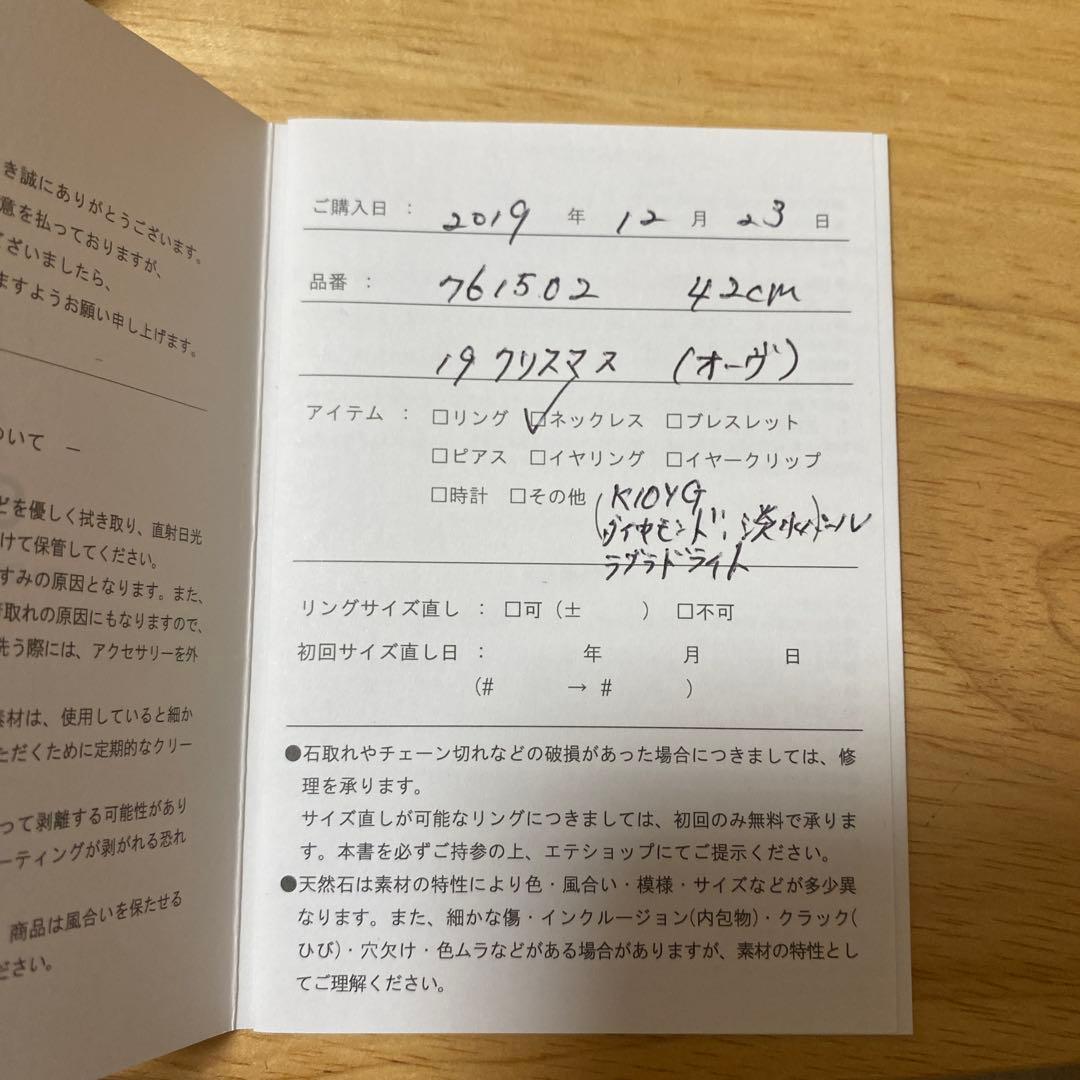 き誠にありがとうございます。
意を払っておりますが、
ございましたら、
ますようお願い申し上げます。
ついて －
どを優しく拭き取り、直射日光
けて保管してください。
すみの原因となります。また、
取れの原因にもなりますので、
洗う際には、アクセサリーを外
素材は、使用していると細か
ただくために定期的なクリー
って剥離する可能性があり
ーティングが剥がれる恐れ
商品は風合いを保たせる
ださい。
ご購入日 : 2019 年 12 月 23 日
品番 : 761502 42cm
19 クリスマス (オーヴ)
アイテム : □リング □ネックレス □ブレスレット
□ピアス □イヤリング □イヤークリップ
□時計 □その他 (K10YG
ダイヤモンド、淡水パール
ラブラドライト
リングサイズ直し : □可 (± ) □不可
初回サイズ直し日 : 年 月 日
(# → # )
●石取れやチェーン切れなどの破損があった場合につきましては、修
理を承ります。
サイズ直しが可能なリングにつきましては、初回のみ無料で承りま
す。本書を必ずご持参の上、エテショップにてご提示ください。
●天然石は素材の特性により色・風合い・模様・サイズなどが多少異
なります。また、細かな傷・インクルージョン(内包物)・クラック(
ひび)・穴欠け・色ムラなどがある場合がありますが、素材の特性とし
てご理解ください。